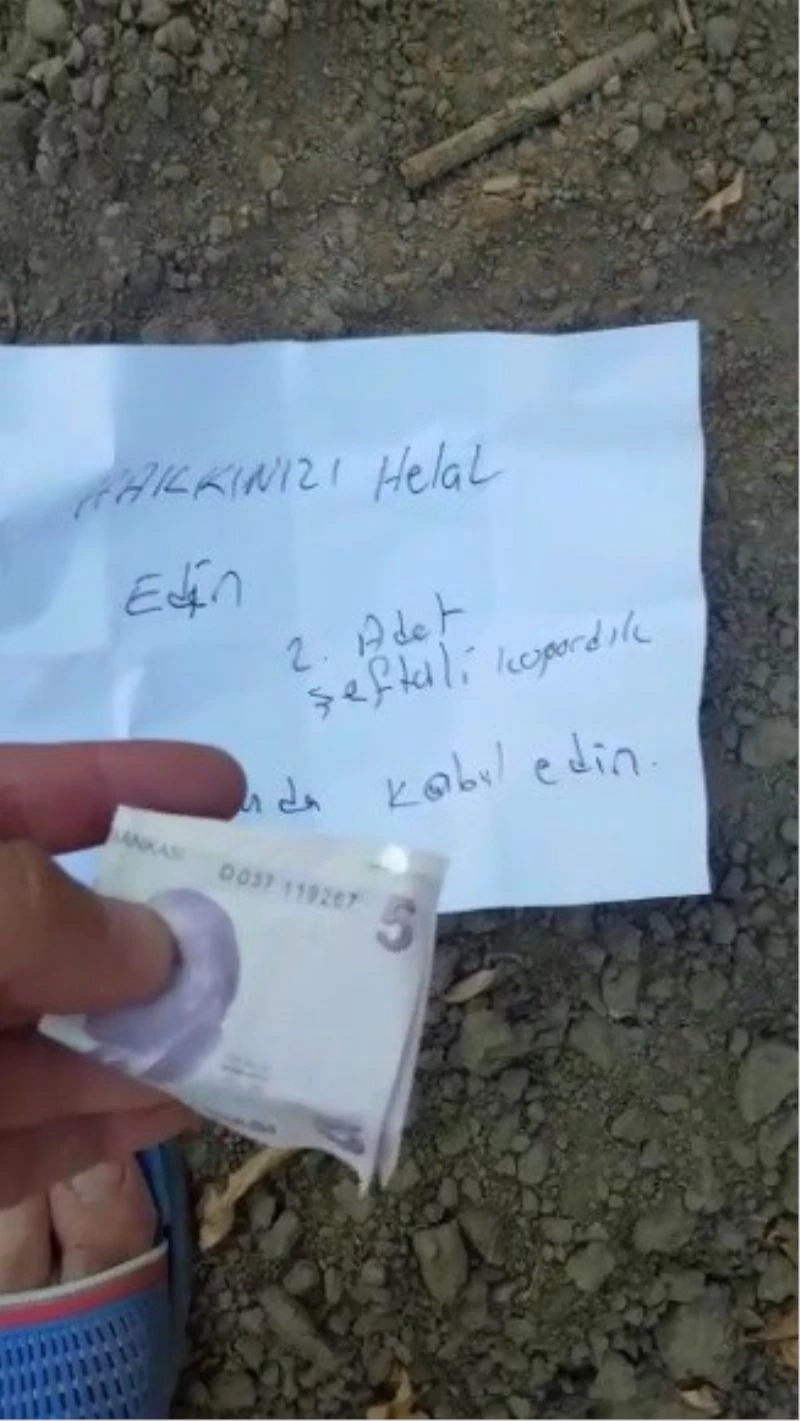 HAKKINIZI Helal
Edin
2. Adet
şeftali kopardık
kabul edin.
BANKASI D037 119267 5
5